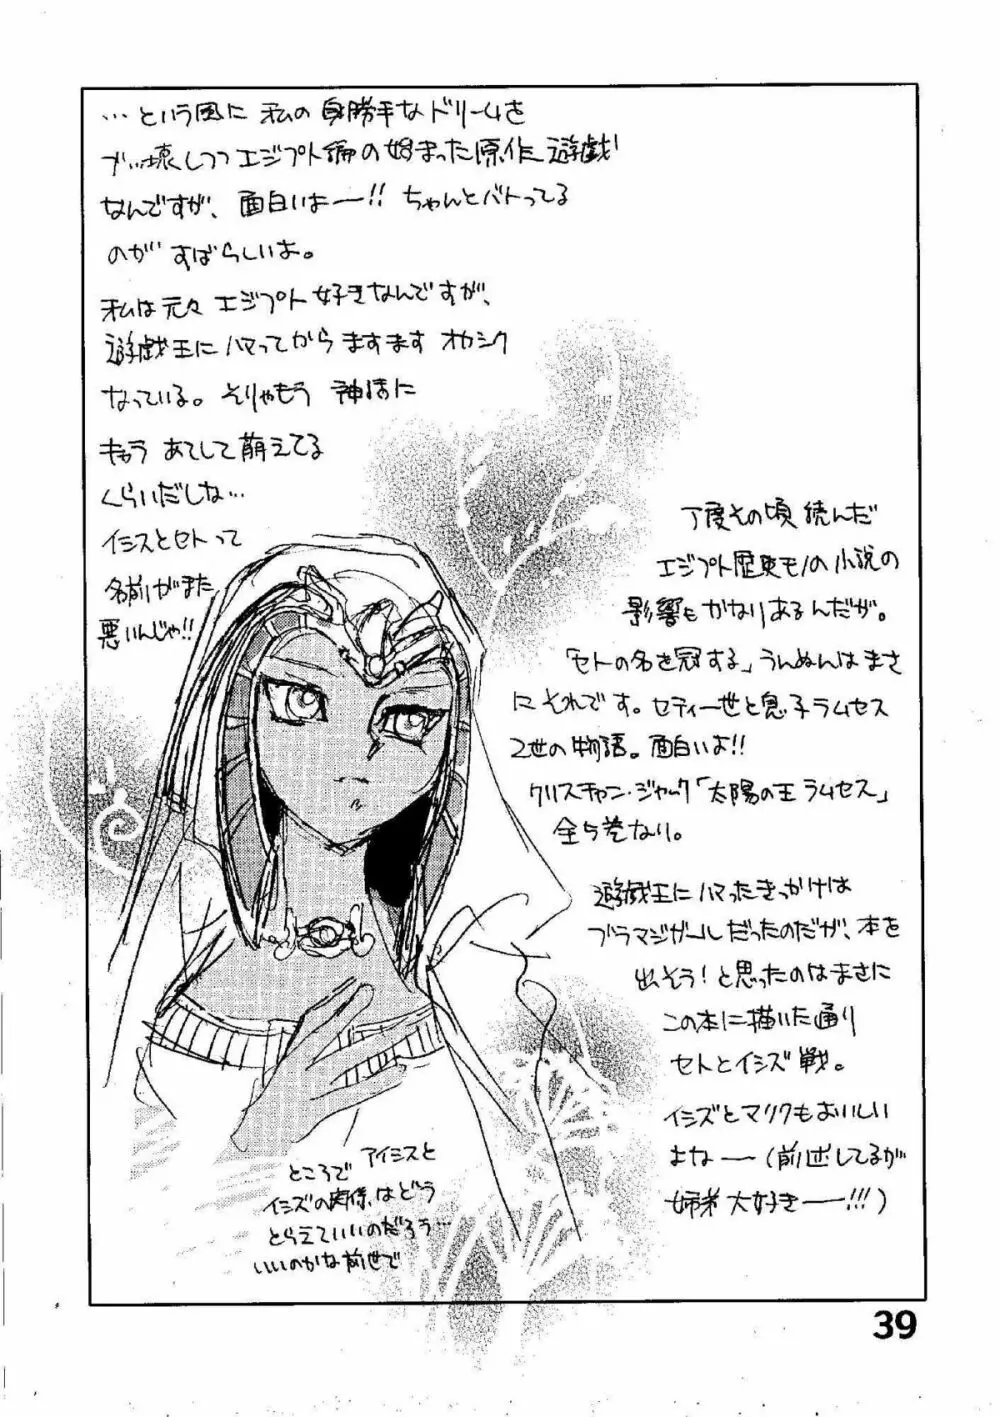 …という風に 私の身勝手なドリームを
ブッ壊しつつエジプト編の始まった原作遊戯
なんですが、面白いよー!! ちゃんとバトってる
のが すばらしいよ。
私は元々エジプト好きなんですが、
遊戯王にハマってから ますます オカシク
なっている。そりゃもう 神話に
キャラ あてして萌えてる
くらいだしな…
イシスとセトって
名前がまた
悪いんじゃ!!
丁度その頃 読んだ
エジプト歴史モノの小説の
影響も かなりあるんだが。
「セトの名を冠する」うんぬんは まさ
にそれです。セティ一世と息子ラムセス
2世の物語。面白いよ!!
クリスチャン・ジャック「太陽の王 ラムセス」
全5巻なり。
遊戯王にハマったきっかけは
ブラマジガールだったのだが、本を
出そう!と思ったのはまさに
この本に描いた通り
セトとイシズ戦。
イシズとマリクもおいしい
よなー(前述してるが
姉弟大好きー!!!)
ところで アイシスと
イシズの関係はどう
とらえていいのだろう…
いいのかな前世で
39